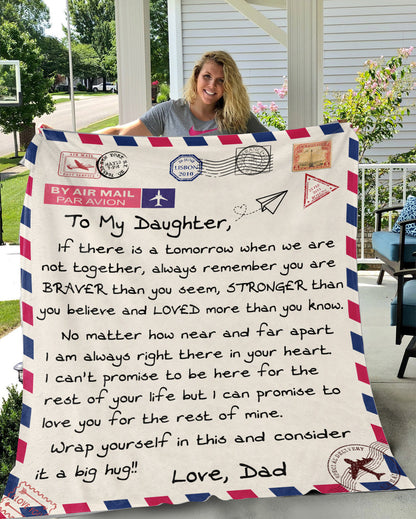 LISBON
2010
BY AIR MAIL
PAR AVION
To My Daughter,
If there is a tomorrow when we are
not together, always remember you are
BRAVER than you seem, STRONGER than
you believe and LOVED more than you know.
No matter how near and far apart
I am always right there in your heart
I can't promise to be here for the
rest of your life but I can promise to
love you for the rest of mine.
Wrap yourself in this and consider
it a big hug!!
Love, Dad
SPECIAL DELIVERY